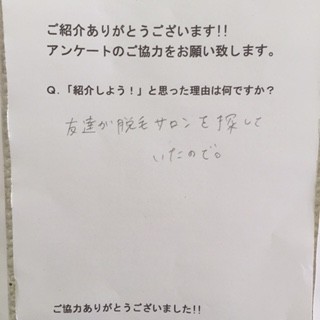 ご紹介ありがとうございます!!
アンケートのご協力をお願い致します。
Q.「紹介しよう!」と思った理由は何ですか?
友達が脱毛サロンを探して
いたので。
ご協力ありがとうございました!!